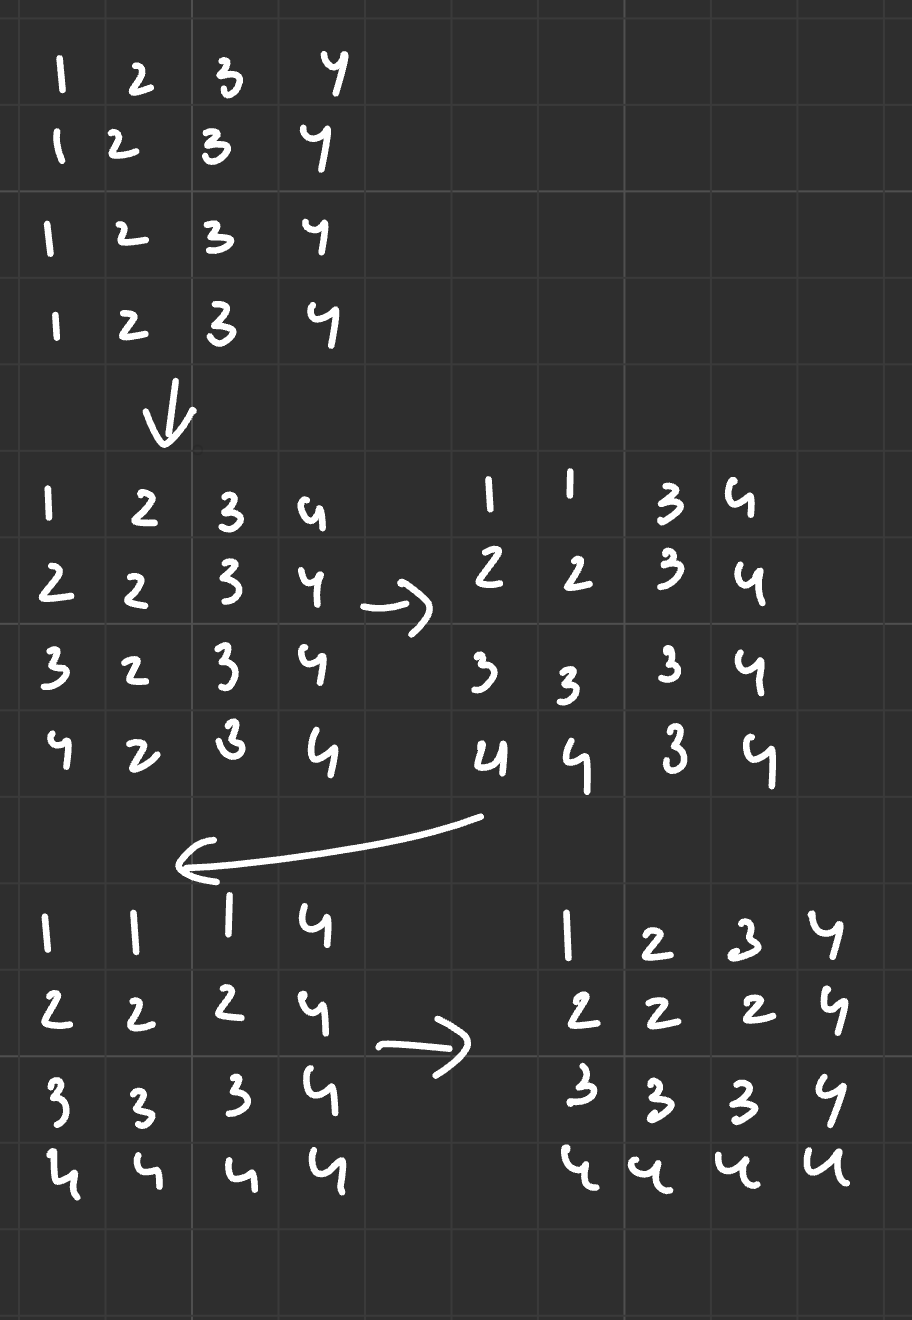 1 2 3 4
1 2 3 4
1 2 3 4
1 2 3 4
↓
1 2 3 4
2 2 3 4
3 2 3 4
4 2 3 4
→
1 1 3 4
2 2 3 4
3 3 3 4
4 4 3 4
←
1 1 1 4
2 2 2 4
3 3 3 4
4 4 4 4
→
1 2 3 4
2 2 2 4
3 3 3 4
4 4 4 4